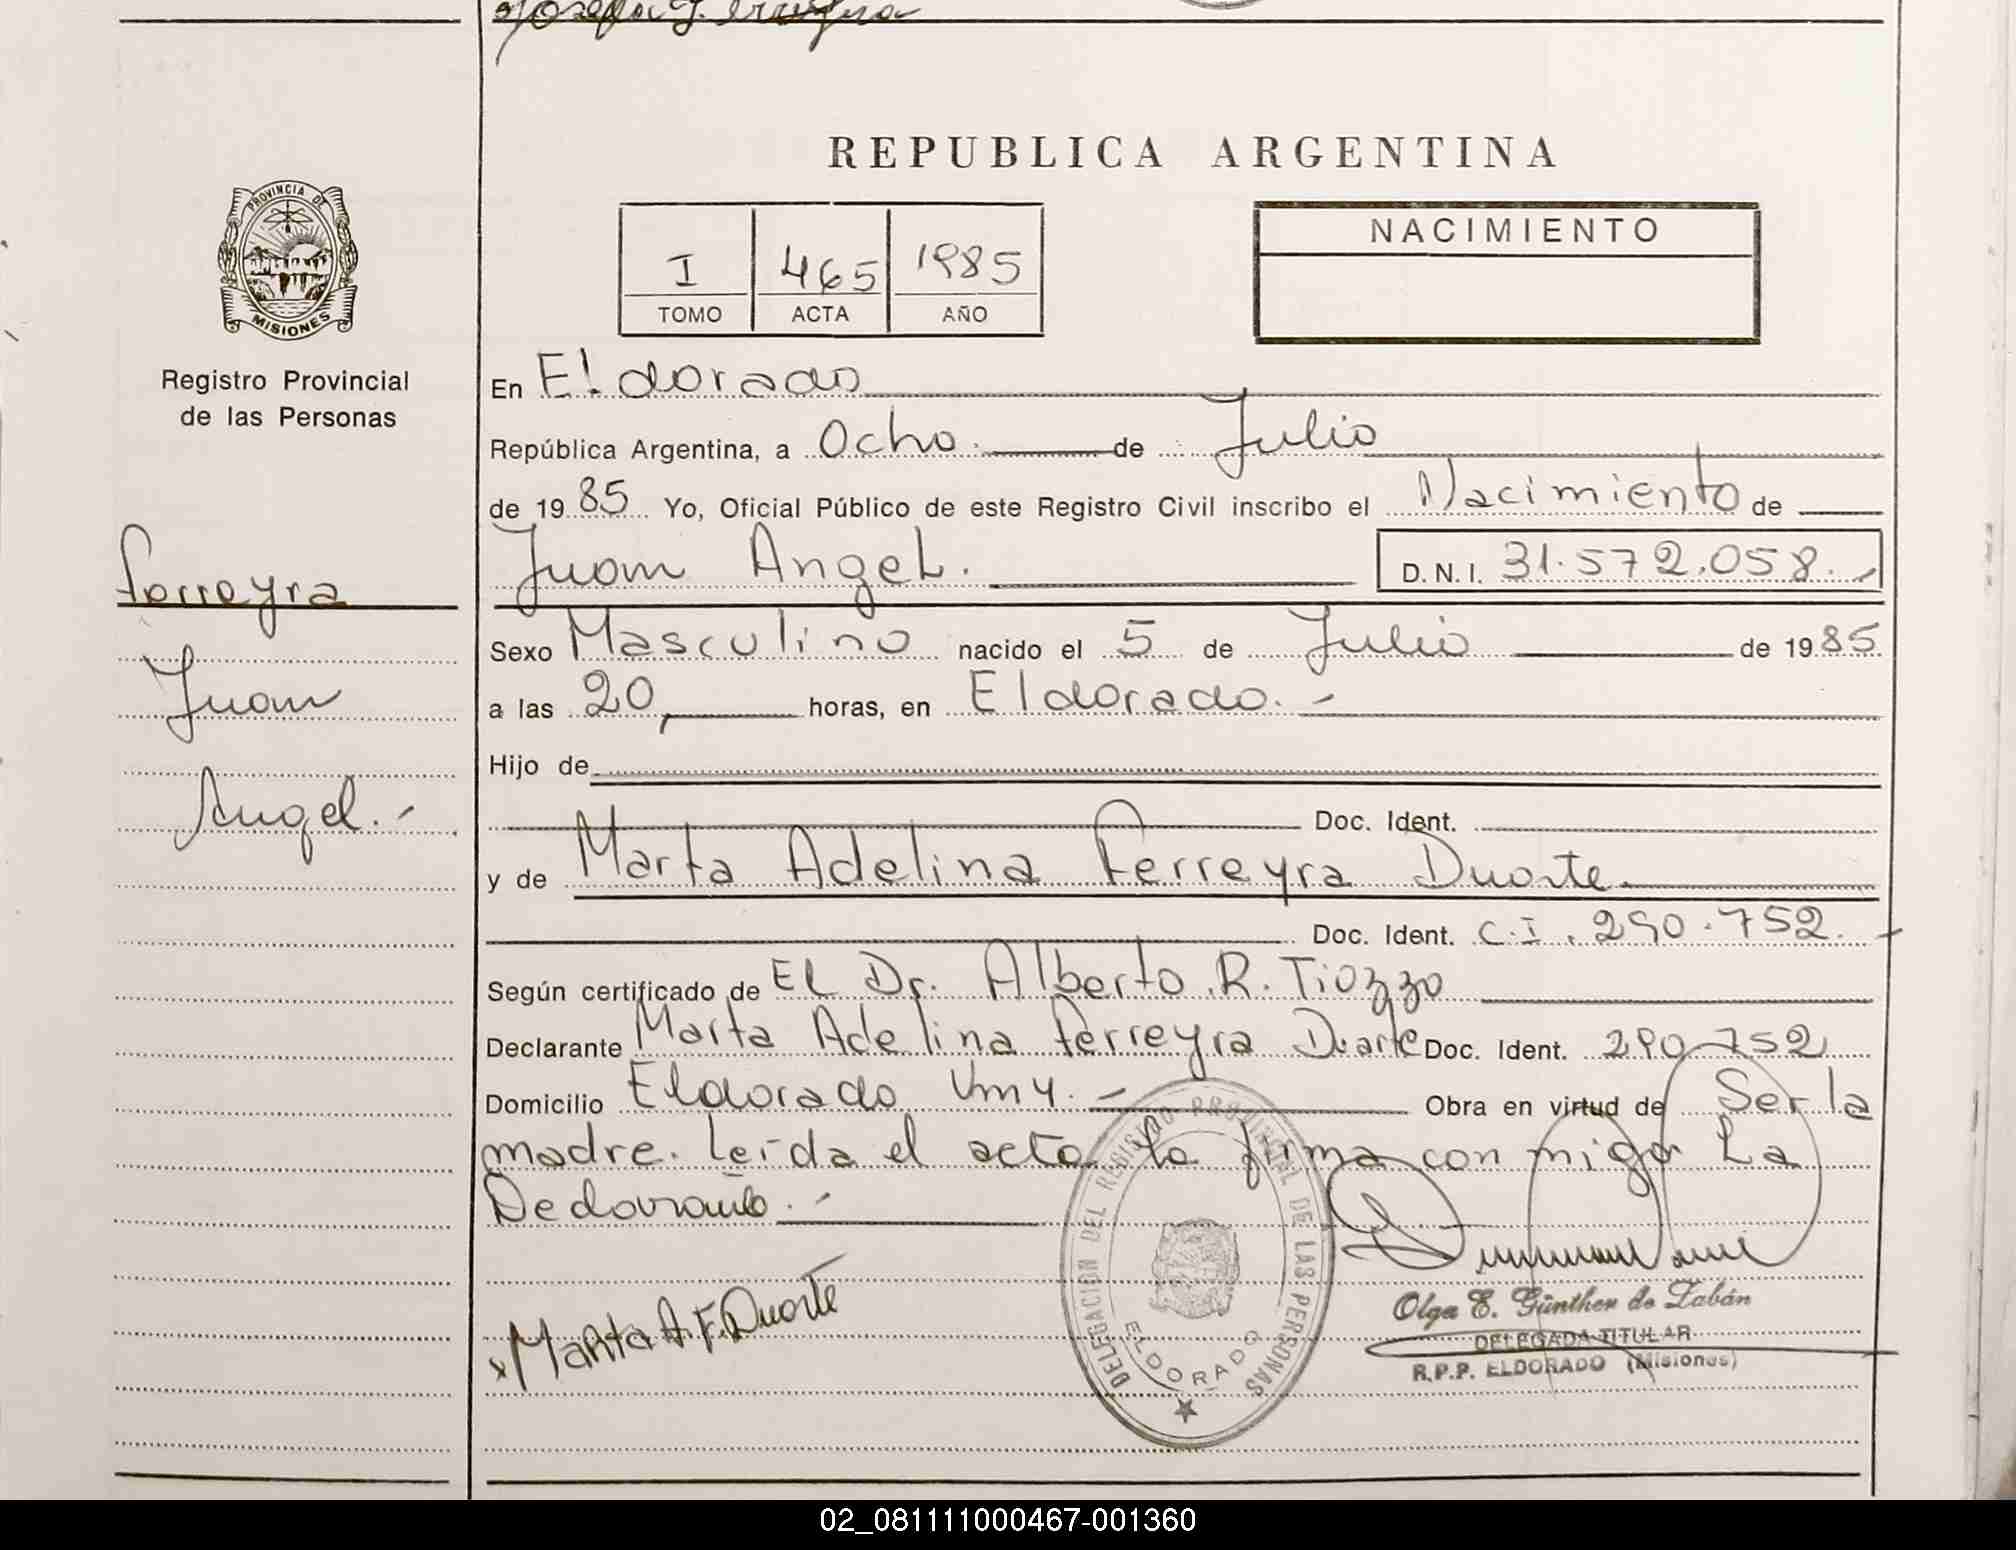 Josefa J. Ferreyra
REPUBLICA ARGENTINA
PROVINCIA DE
MISIONES
Registro Provincial
de las Personas
I 465 1985
TOMO ACTA AÑO
NACIMIENTO
En El dorado
República Argentina, a Ocho. de Julio
de 1985 Yo, Oficial Público de este Registro Civil inscribo el Nacimiento de
Juan Angel. D.N.I. 31.572.058.
Ferreyra
Juan
Angel.-
Sexo Masculino nacido el 5 de Julio de 1985
a las 20, horas, en Eldorado. -
Hijo de
Doc. Ident.
y de Marta Adelina Ferreyra Duarte.
Doc. Ident. C.I. 290.752.
Según certificado de EL Dr. Alberto R. Tiozzo
Declarante Marta Adelina Ferreyra Duarte Doc. Ident. 290.752
Domicilio Eldorado Km 4. - Obra en virtud de Ser la
madre. Leída el acta la firma con migo La
Declarante. -
x Marta A. F. Duarte
DELEGACION DEL REGISTRO PROVINCIAL DE LAS PERSONAS
ELDORADO
Olga E. Günther de Zabán
DELEGADA TITULAR
R.P.P. ELDORADO (Misiones)
02_081111000467-001360